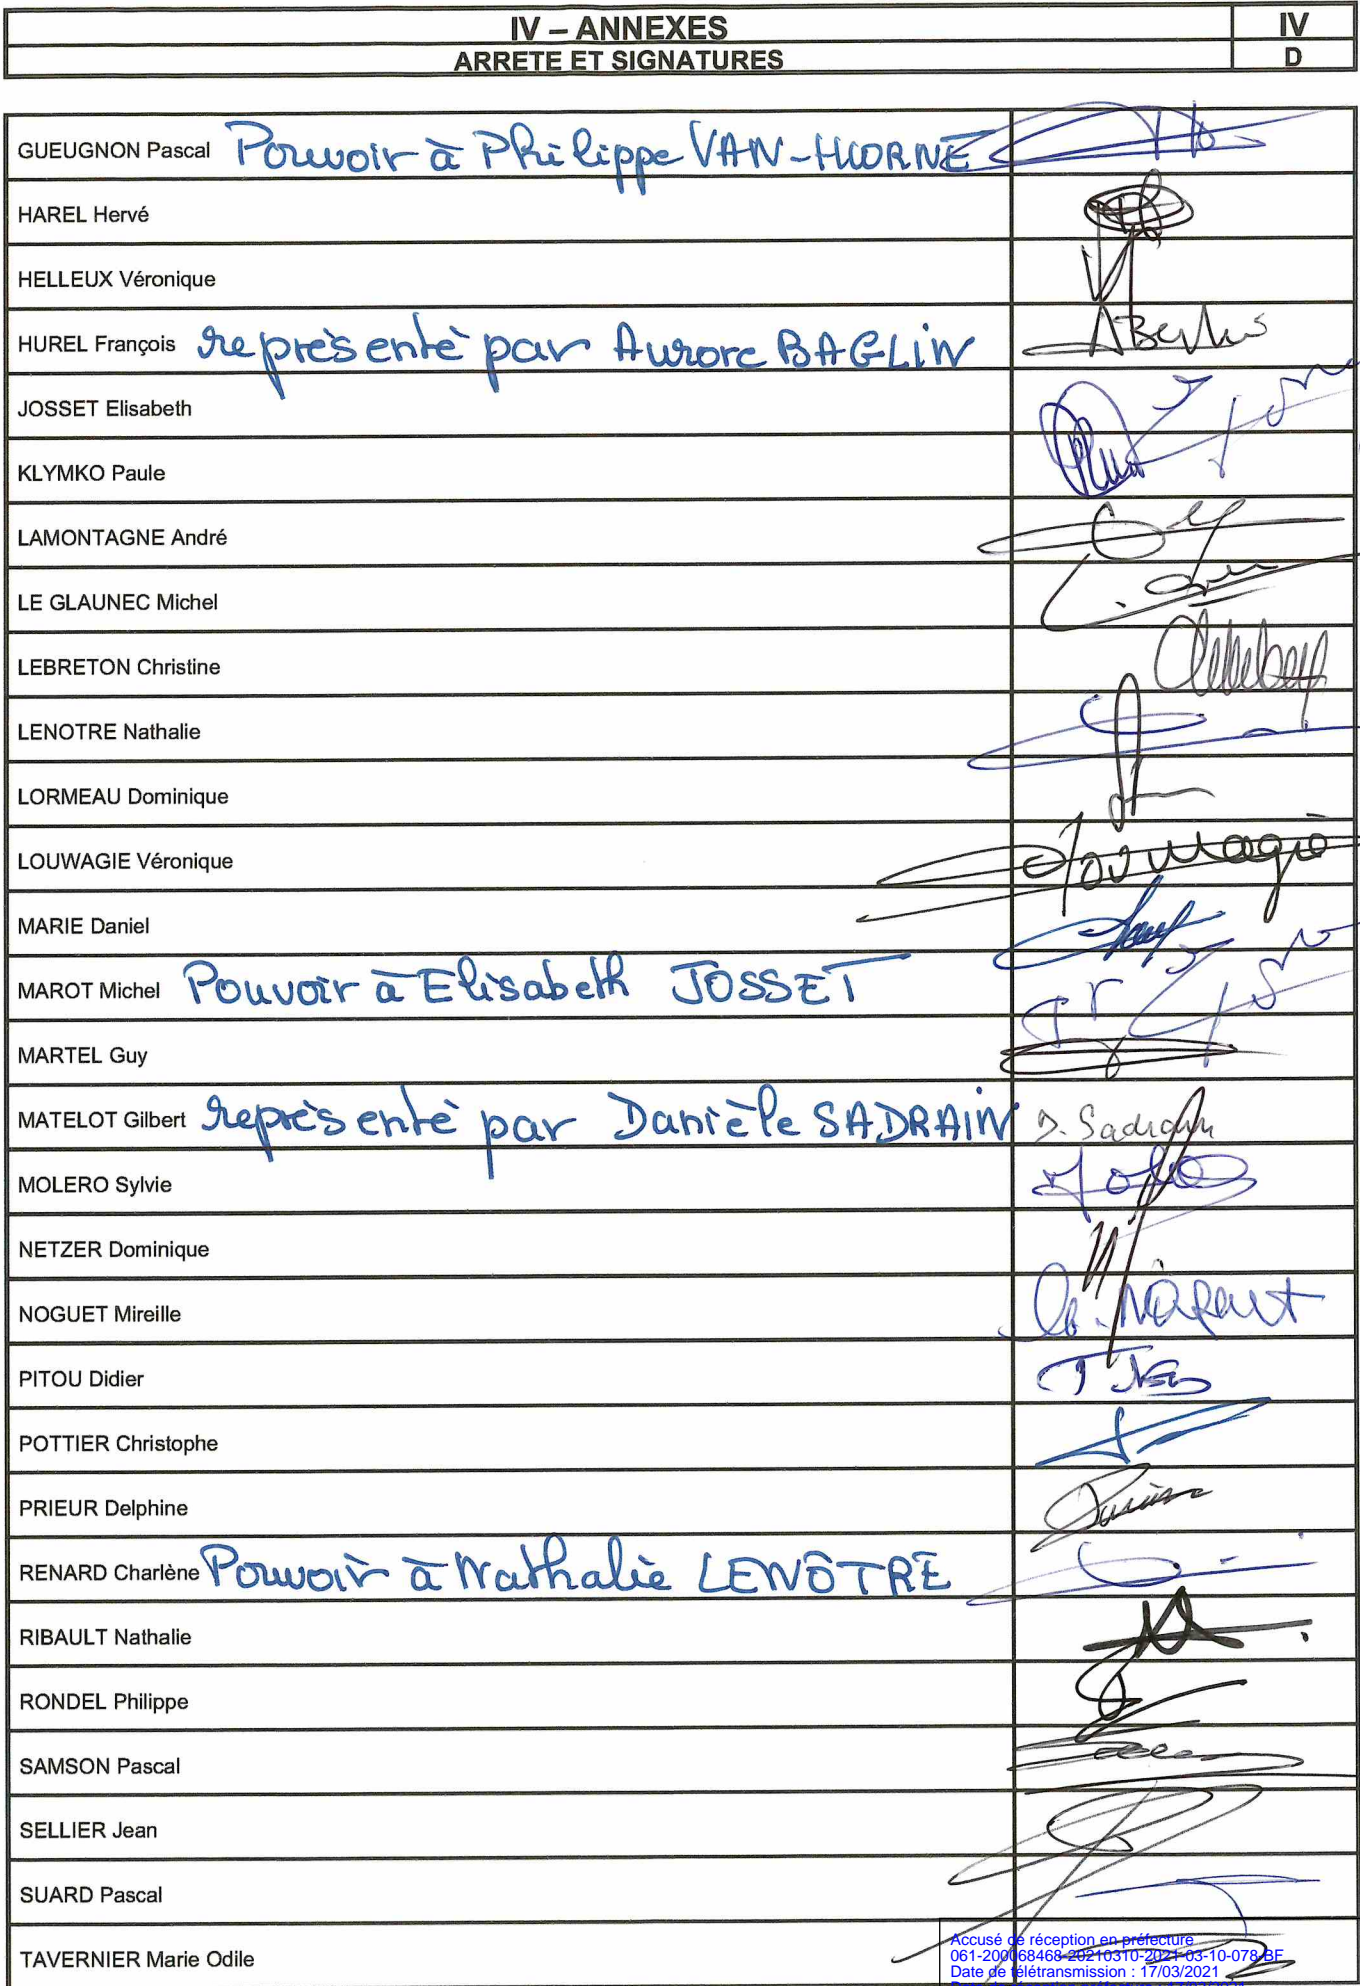 IV – ANNEXES IV
ARRETE ET SIGNATURES D
GUEUGNON Pascal Pouvoir à Philippe VAN-HOORNE
HAREL Hervé
HELLEUX Véronique
HUREL François représenté par Aurore BAGLIN
JOSSET Elisabeth
KLYMKO Paule
LAMONTAGNE André
LE GLAUNEC Michel
LEBRETON Christine
LENOTRE Nathalie
LORMEAU Dominique
LOUWAGIE Véronique
MARIE Daniel
MAROT Michel Pouvoir à Elisabeth JOSSET
MARTEL Guy
MATELOT Gilbert représenté par Danièle SADRAIN D. Sadrain
MOLERO Sylvie
NETZER Dominique
NOGUET Mireille
PITOU Didier
POTTIER Christophe
PRIEUR Delphine
RENARD Charlène Pouvoir à Nathalie LENÔTRE
RIBAULT Nathalie
RONDEL Philippe
SAMSON Pascal
SELLIER Jean
SUARD Pascal
TAVERNIER Marie Odile
Accusé de réception en préfecture
061-200068468-20210310-2021-03-10-078-BF
Date de télétransmission : 17/03/2021